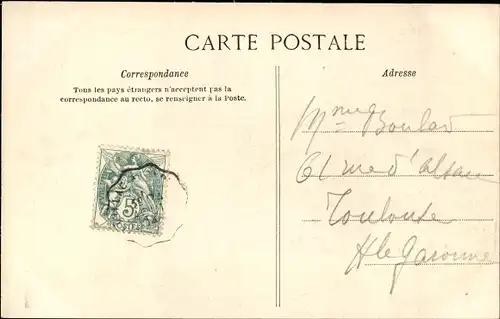 CARTE POSTALE
Correspondance
Tous les pays étrangers n'acceptent pas la
correspondance au recto, se renseigner à la Poste.
Adresse
Mme
61 rue d'
Toulouse
Hte Garonne
5